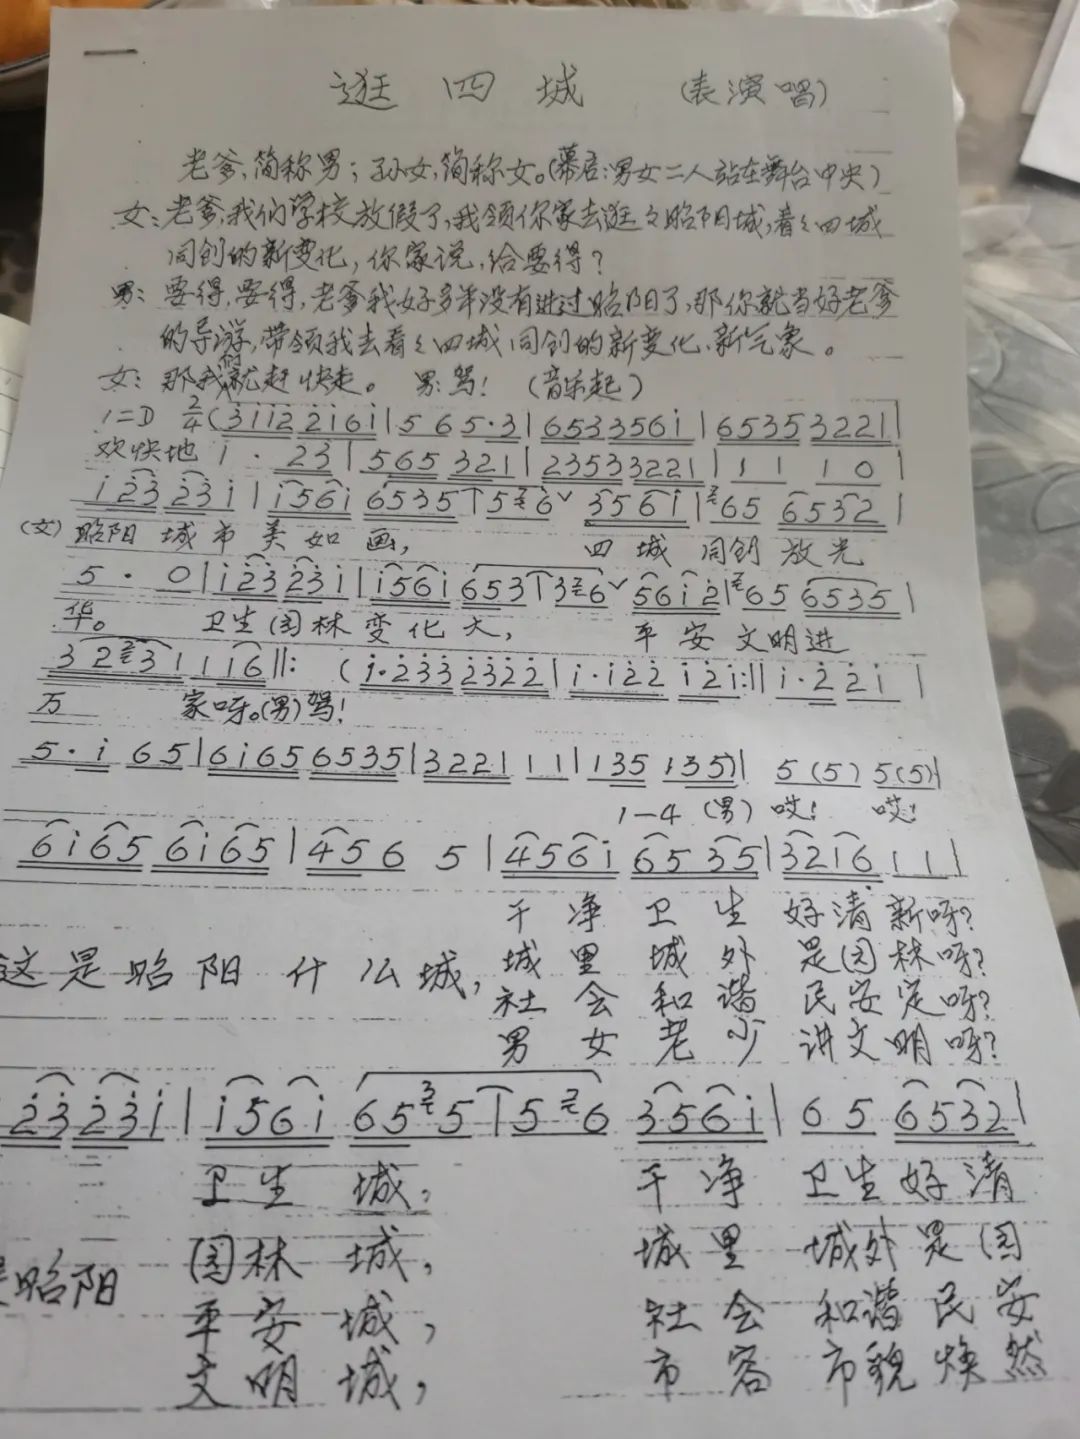 逛 四 城 (表演唱)
老爹,简称男;孙女,简称女。(幕启:男女二人站在舞台中央)
女:老爹,我们学校放假了,我领你家去逛々昭阳城,看々四城
同创的新变化,你家说,给要得?
男:要得,要得,老爹我好多年没有进过昭阳了,那你就当好老爹
的导游,带领我去看々四城同创的新变化、新气象。
女:那我们就赶快走。 男:驾! (音乐起)
1=D 2/4 (3̇1̇1̇2̇ 2̇1̇61̇ | 5 6 5·3 | 6533 3561̇ | 6535 3221 |
欢快地 1̇· 2̇3̇ | 565 321 | 23533221 | 1 1 1 0 |
1̇2̇3̇ 2̇3̇1̇ | 1̇561̇ 6535 | 5 6 ˅ 3561̇ | 65 6532 |
(女) 昭阳 城市 美如画, 四城 同创 放光
5· 0 | 1̇2̇3̇ 2̇3̇1̇ | 1̇561̇ 653 | 3 6 ˅ 561̇2̇ | 65 6535 |
华。 卫生园林变化大, 平安文明进
32 31 116̣ ‖: (1̇·2̇3̇3̇ 2̇3̇2̇2̇ | 1̇·1̇2̇2̇ 1̇2̇1̇ :‖ 1̇·2̇ 2̇1̇ |
万 家呀。(男)驾!
5·1̇ 65 | 61̇65 6535 | 3221 11 | 135 135) | 5(5) 5(5) |
1—4 (男) 哎! 哎!
61̇65 61̇65 | 456 5 | 4561̇ 65 35 | 3216̣ 11 |
干净卫生 好清新呀?
这是昭阳什么城, 城里城外 是园林呀?
社会和谐 民安定呀?
男女老少 讲文明呀?
2̇3̇ 2̇3̇1̇ | 1̇561̇ 65 5 | 5 6 3561̇ | 65 6532 |
卫生城, 干净 卫生好清
园林城, 城里 城外是园
是昭阳
平安城, 社会 和谐民安
文明城, 市容 市貌焕然